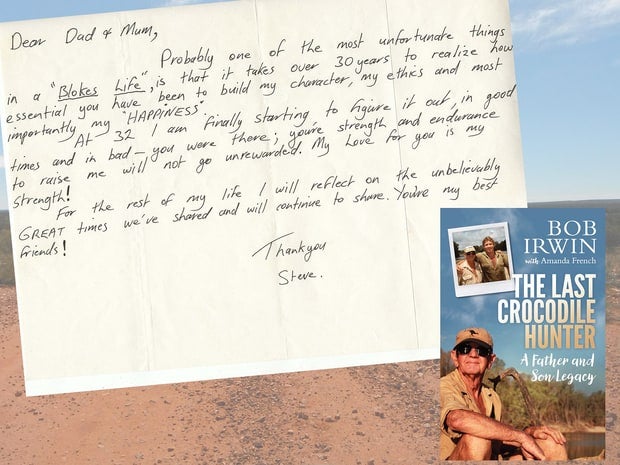 Dear Dad & Mum,
Probably one of the most unfortunate things
in a "Blokes Life", is that it takes over 30 years to realize how
essential you have been to build my character, my ethics and most
importantly my "HAPPINESS".
At 32 I am finally starting to figure it out, in good
times and in bad – you were there; you're strength and endurance
to raise me will not go unrewarded. My Love for you is my
strength!
For the rest of my life I will reflect on the unbelievably
GREAT times we've shared and will continue to share. You're my best
friends!
Thankyou
Steve.
BOB
IRWIN
with Amanda French
THE LAST
CROCODILE
HUNTER
A Father and
Son Legacy